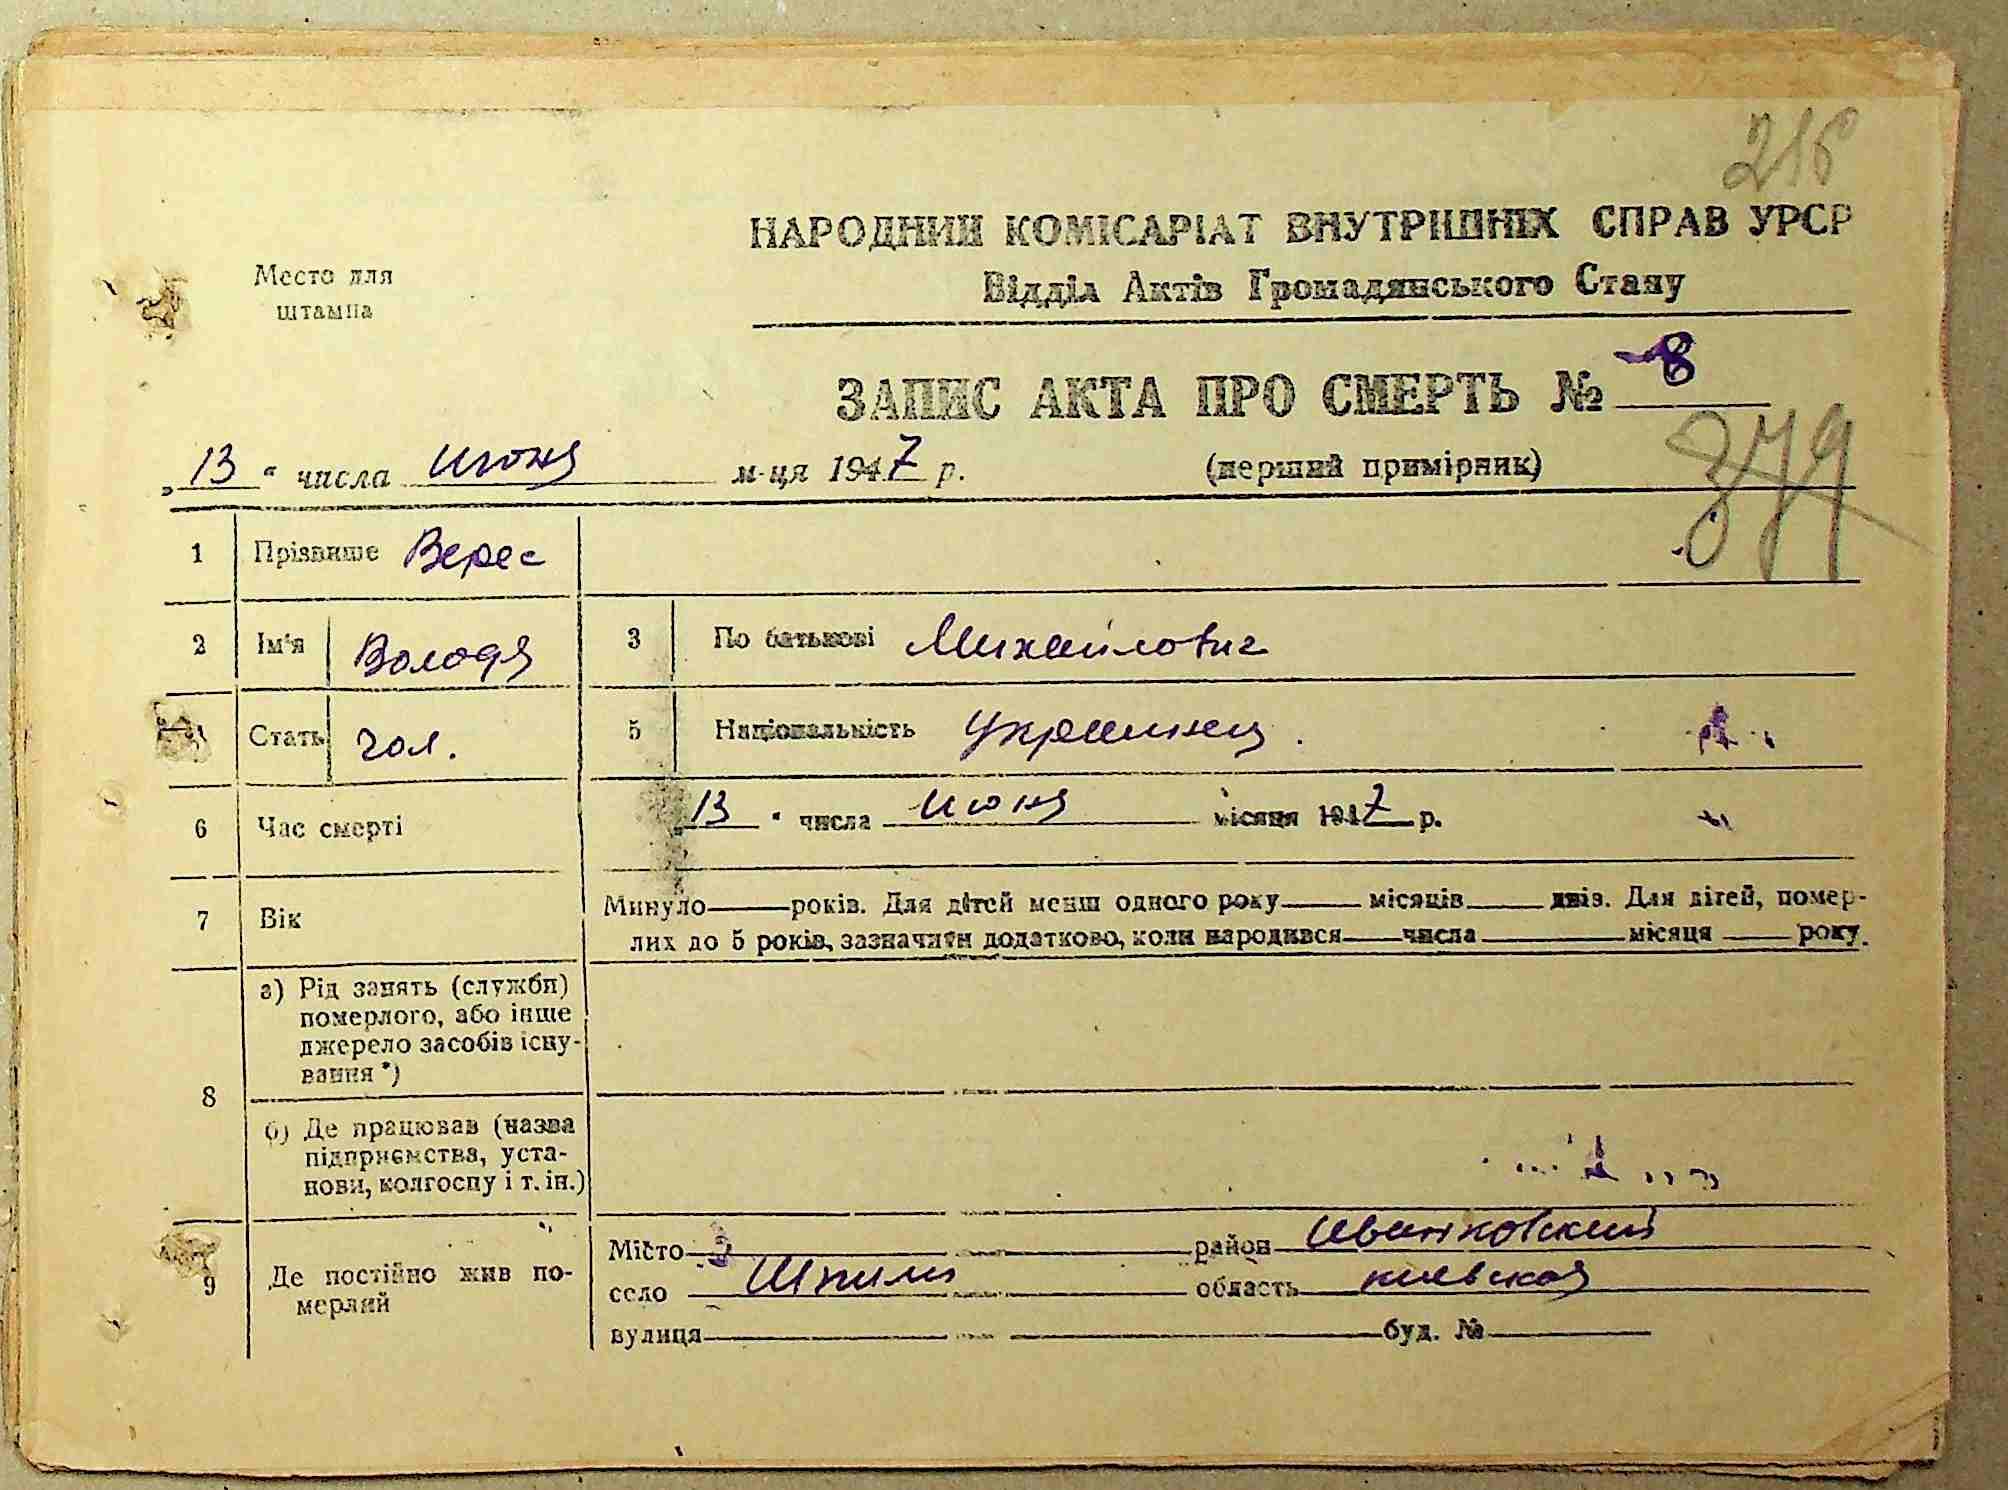 216
НАРОДНИЙ КОМІСАРІАТ ВНУТРІШНІХ СПРАВ УРСР
Место для
штампа
Відділ Актів Громадянського Стану
ЗАПИС АКТА ПРО СМЕРТЬ № 8
379
„13“ числа июня м-ця 1947 р. (перший примірник)
1 Прізвище Верес
2 Ім'я Володя 3 По батькові Михайлович
Стать чол. 5 Національність украинец.
6 Час смерті „13“ числа июня місяця 1947 р.
7 Вік Минуло років. Для дітей менш одного року місяців днів. Для дітей, помер-
лих до 5 років, зазначити додатково, коли народився числа місяця року.
8 а) Рід занять (служби)
померлого, або інше
джерело засобів існу-
вання *)
б) Де працював (назва
підприємства, уста-
нови, колгоспу і т. ін.)
9 Де постійно жив по-
мерлий
Місто район Иванковский
село Шпили область киевская
вулиця буд. №